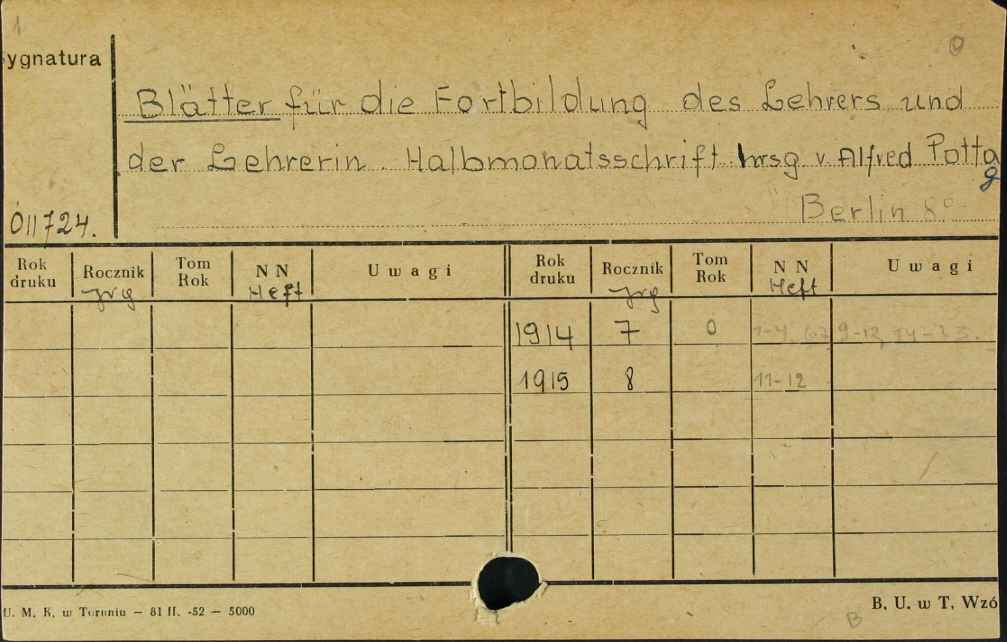 1
ygnatura
Blätter für die Fortbildung des Lehrers und
der Lehrerin. Halbmonatsschrift hrsg v. Alfred Pottag
Berlin 8º
011724.
Rok druku Rocznik Jrg Tom Rok NN Heft Uwagi Rok druku Rocznik Jrg Tom Rok NN Heft Uwagi
1914 7 0 9-12, 14-23.
1915 8 11-12
U. M. K. w Toruniu — 81 II. -52 — 5000
B. U. w T. Wzó
B